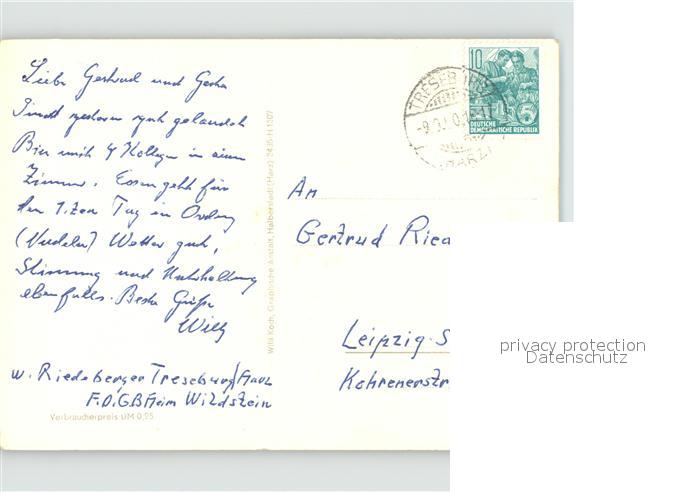 Liebe Gertrud und Gerda
Sind gestern gut gelandet
Bin mit 4 Kollegen in einem
Zimmer. Essen geht für
den 1. ten Tag in Ordnung
(Nudeln) Wetter gut,
Stimmung und Unterhaltung
ebenfalls. Beste Grüße
Willy
w. Riedeberger Treseburg/Harz
F.D.G.B Heim Wildstein
Verbraucherpreis DM 0,25
Willi Koch, Graphische Anstalt, Halberstadt (Harz)
TRESEBURG
(HARZ)
10
5
DEUTSCHE
DEMOKRATISCHE REPUBLIK
An
Gertrud Rie
Leipzig-S
Kohrenerstr
privacy protection
Datenschutz